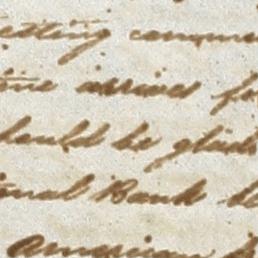 etting comme
ime arrives fo
hould be glad
ional Bank
American